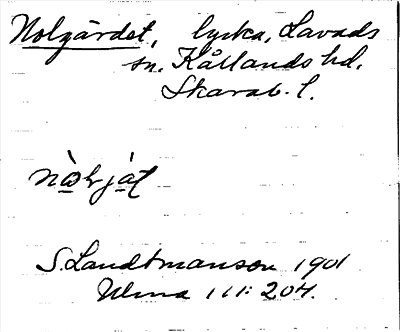 Nolgärdet, lycka, Lavads
sn. Kållands hd.
Skarab. l.
S. Landtmanson 1901
Ulma 111: 204.